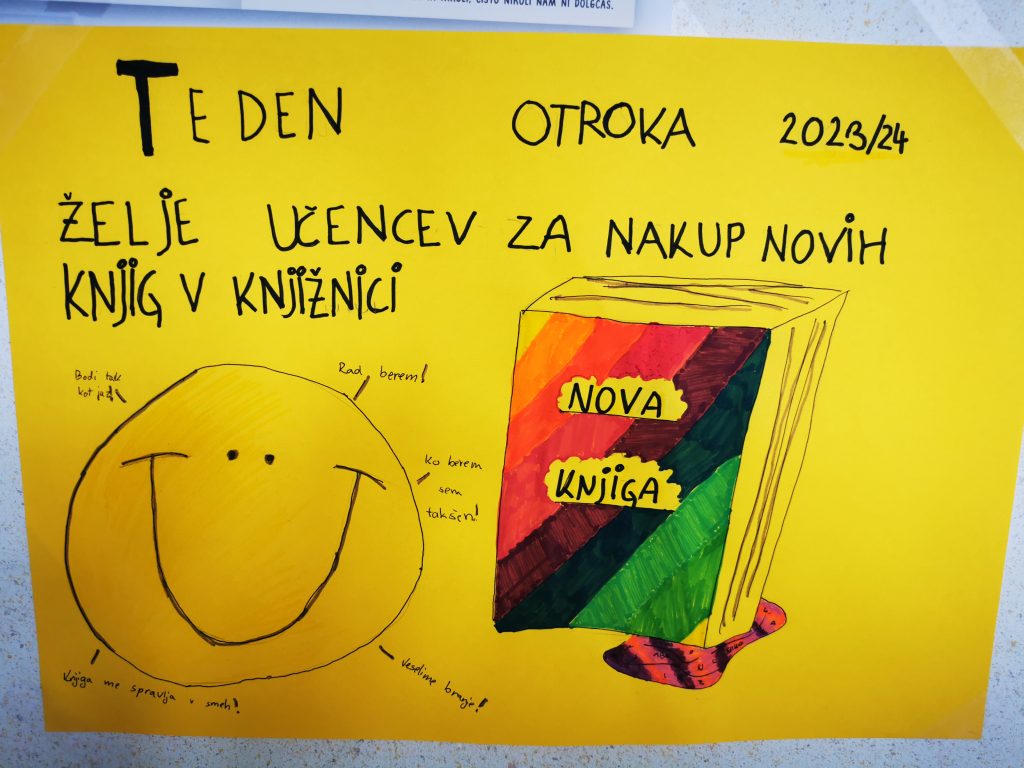 NIKOLI, ČISTO NIKOLI NAM NI DOLGČAS.
TEDEN OTROKA 2023/24
ŽELJE UČENCEV ZA NAKUP NOVIH
KNJIG V KNJIŽNICI
Bodi tak
kot jaz!
Rad berem!
Ko berem
sem
takšen!
Knjiga me spravlja v smeh!
Veselime branje!
NOVA
KNJIGA